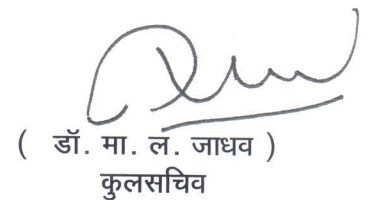 ( डॉ. मा. ल. जाधव )
कुलसचिव